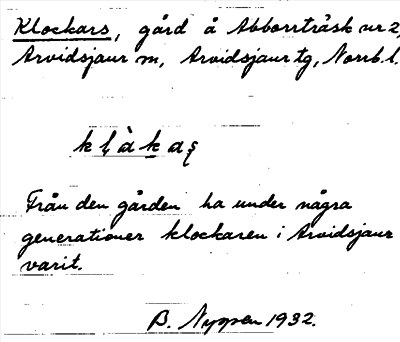 Klockars, gård å Abborrträsk nr 2,
Arvidsjaur m, Arvidsjaur tg, Norrb. l.
kḷàkaş
Från den gården ha under några
generationer klockaren i Arvidsjaur
varit.
B. Nyman 1932.